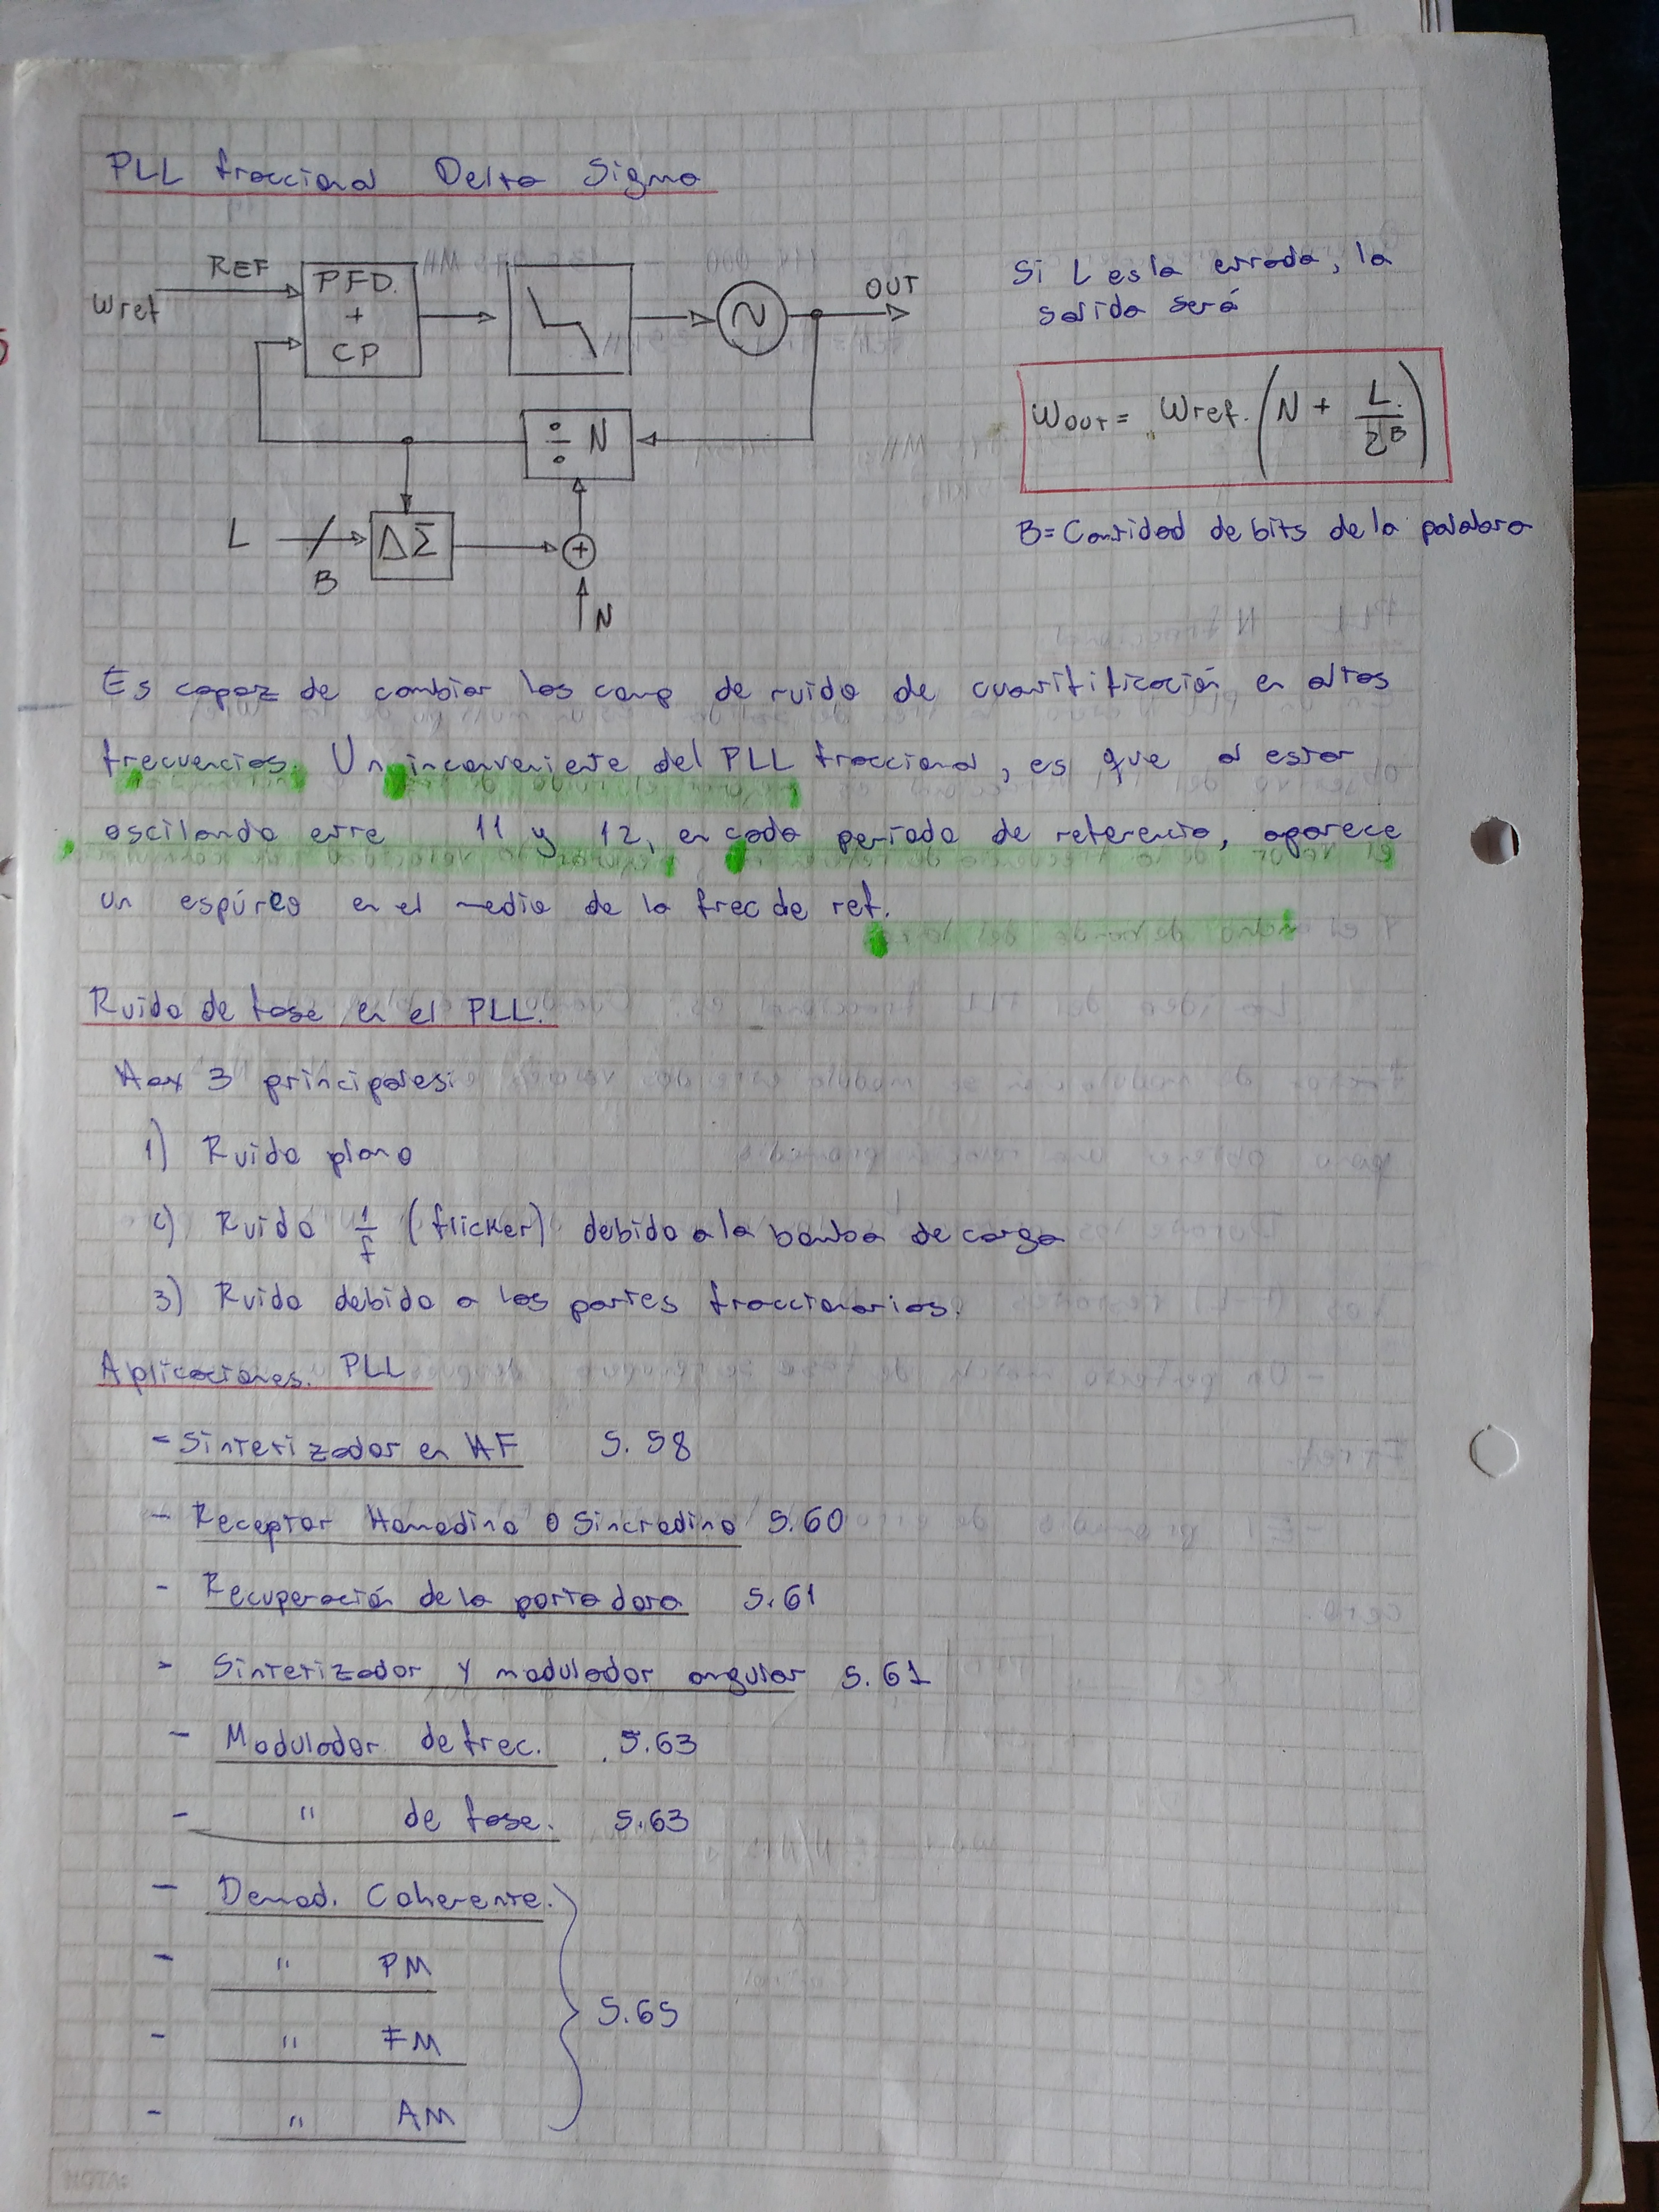 PLL fraccional Delta Sigma
REF
Wref
PFD.
+
CP
OUT
÷ N
L
B
ΔΣ
+
N
Si L es la entrada, la
salida será
WOUT = Wref. (N + L/2^B)
B = Cantidad de bits de la palabra
Es capaz de cambiar las comp de ruido de cuantitificación en altas
frecuencias. Un inconveniente del PLL fraccional, es que al estar
oscilando entre 11 y 12, en cada periodo de referencia, aparece
un espúreo en el medio de la frec de ref.
Ruido de fase en el PLL.
Hay 3 principales:
1) Ruido plano
2) Ruido 1/f (flicker) debido a la bomba de carga
3) Ruido debido a las partes fraccionarias.
Aplicaciones PLL
- Sintetizador en HF 5.58
- Receptor Homodino o Sincrodino 5.60
- Recuperación de la portadora 5.61
- Sintetizador y modulador angular 5.61
- Modulador de frec. 5.63
- " de fase. 5.63
- Demod. Coherente.
- " PM
- " FM
- " AM
5.65
NOTA: